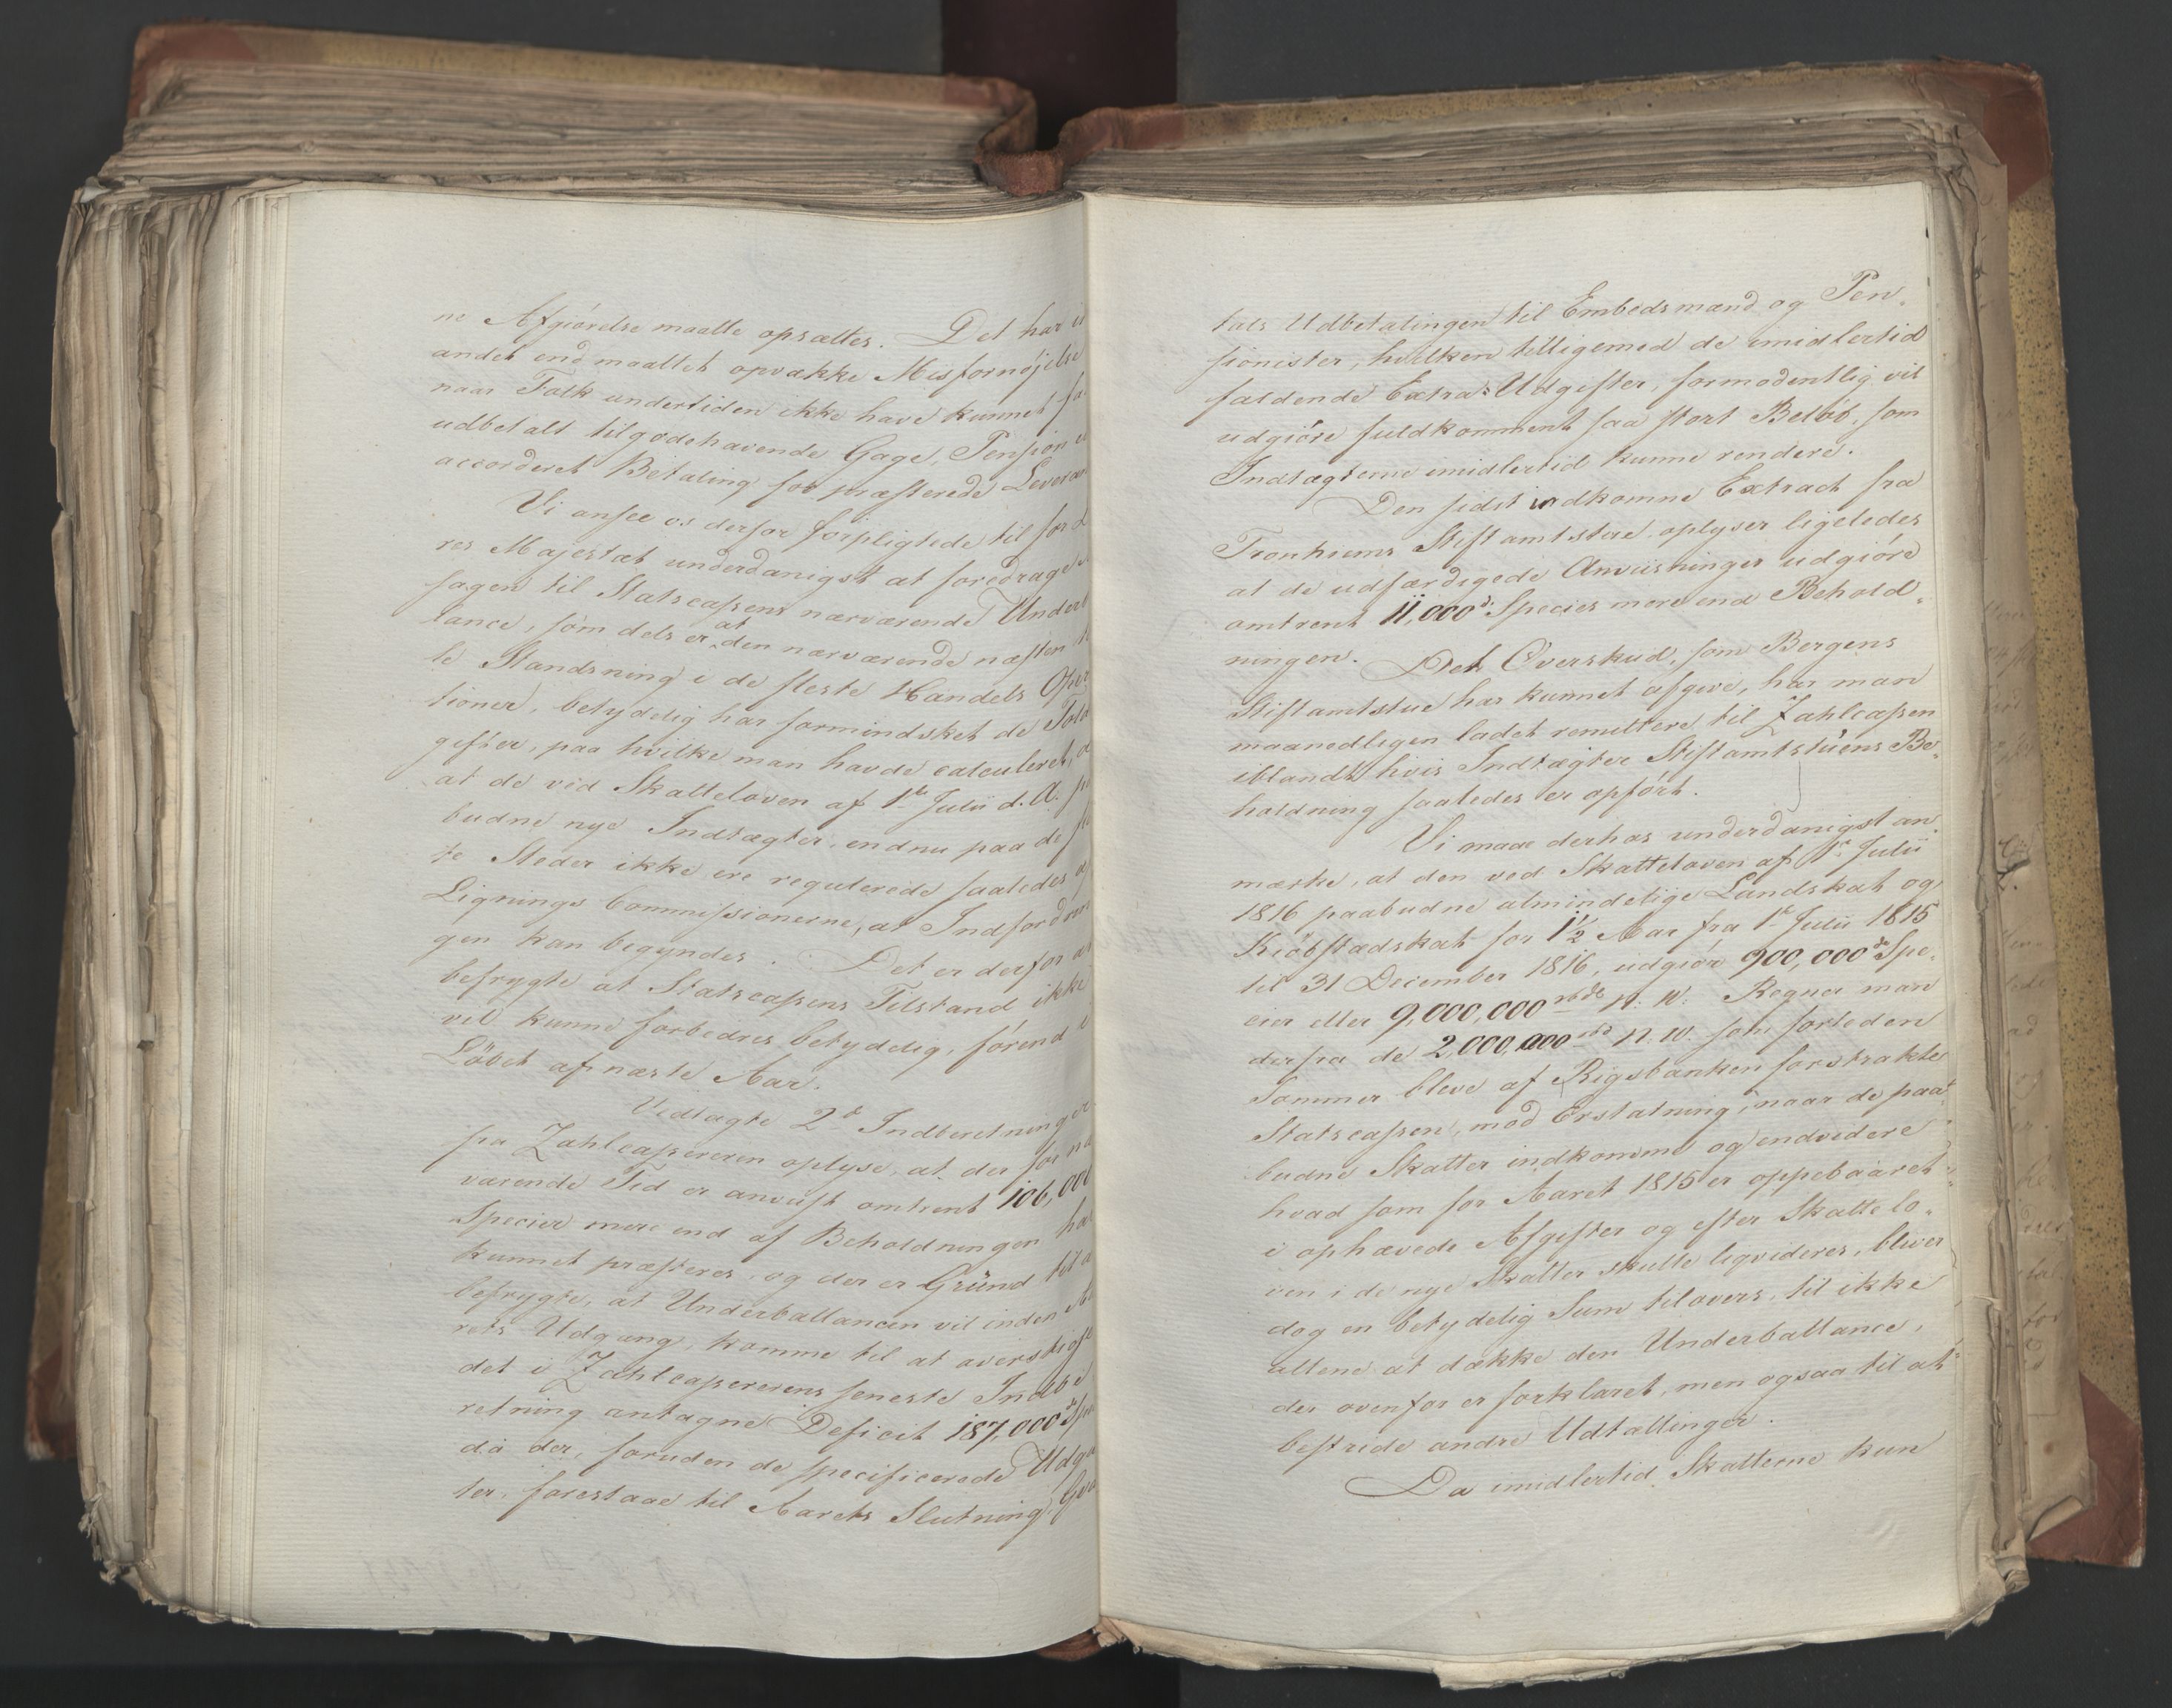 ne Afgiørelse maatte opsættes. Det har i
andet end maattet opvække Misfornøjelse
naar Folk undertiden ikke have kunnet fa
udbetalt tilgodehavende Gage, Pension
accorderet Betaling for præsterede Leveran
Vi ansee os derfor forpligtede til for D
res Majestæt underdanigst at foredrage
sagen til Statscassens nærværende Underb
lance, som dels er at den nærværende næsten
le Standsning i de fleste Handels Oper
tioner, betydelig har formindsket de Told
gifter, paa hvilke man havde calculeret,
at de ved Skatteloven af 1te Julii d. A. p
budne nye Indtægter, endnu paa de fle
ste Steder ikke ere regulerede saaledes a
Lignings Commissionerne, at Indfordrin
gen kan begyndes. Det er derfor a
befrygte at Statscassens Tilstand ikke
vil kunne forbedres betydelig, förend i
Löbet af næste Aar.
Vedlagte 2de Indberetninger
fra Zahlcassereren oplyse, at der for næ
værende Tid er anviist omtrent 106,000
Species mere end af Beholdningen har
kunnet præsteres, og der er Grund til a
befrygte, at Underballancen vil inden Aa
rets Udgang, komme til at overstige
det i Zahlcassererens seneste Indbe
retning antagne Deficit 187,000de Spe
da der, foruden de specificerede Udgi
ter, forestaae til Aarets Slutning, Qva
tals Udbetalingen til Embedsmænd og Pen-
sionister, hvilken tilligemed de imidlertid
faldende Extra-Udgifter, formodentlig vil
udgiöre fuldkomment saa stort Belöb, som
Indtægterne imidlertid kunne rendere.
Den sidst indkomne Extract fra
Tronhiems Stiftamtstue, oplyser ligeledes
at de udfærdigede Anviisninger udgiöre
omtrent 11,000d: Species mere end Behold-
ningen. Det Overskud, som Bergens
Stiftamtstue har kunnet afgive, har man
maanedligen ladet remittere til Zahlcassen
iblandt hvis Indtægter Stiftamtstuens Be-
holdning saaledes er opfört.
Vi maae derhos underdanigst an-
mærke, at den ved Skatteloven af 1te Julii
1816 paabudne almindelige Landskat og
Kiöbstædskat for 1½ Aar fra 1te Julii 1815
til 31 December 1816, udgiör 900,000de Spe-
cier eller 9,000,000 rbdr n: v: Regner man
derfra de 2,000,000 rbd n. v. som forleden
Sommer bleve af Rigsbanken forstrakte
Statscassen, mod Erstatning, naar de paa-
budne Skatter indkomme og endvidere
hvad som for Aaret 1815 er oppebaaret
i ophævede Afgifter og efter Skattelo-
ven i de nye Skatter skulle liqvideres, bliver
dog en betydelig Sum tilovers, til ikke
allene at dække den Underballance,
der ovenfor er forklaret, men ogsaa til at
bestride andre Udtællinger.
Da imidlertid Skatterne kun